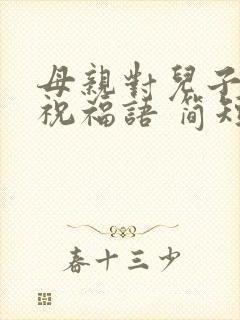 母親對兒子
祝福語 簡短
春十三少